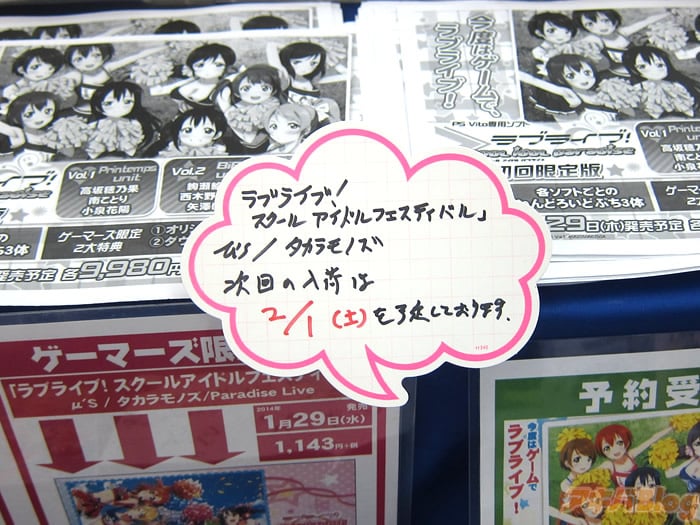 今度はゲームで、
ラブライブ!
PS Vita専用ソフト
ラブライブ!
School idol paradise
初回限定版
Vol.1 Printemps
unit
高坂穂乃果
南ことり
小泉花陽
Vol.2
ゲーマーズ限定
2大特典
発売予定 各9,980円
各ソフトごとの
ラブライブ!
スクール アイドルフェスティバル」
μ's / タカラモノズ
次回の入荷は
2/1 (土)を予定しております.
ゲーマーズ限
「ラブライブ! スクールアイドルフェスティ
μ'S / タカラモノズ/Paradise Live
2014年
1月29日(水)
発売
1,143円+税
予約受
今度はゲームで
ラブライブ!
アキバBlog